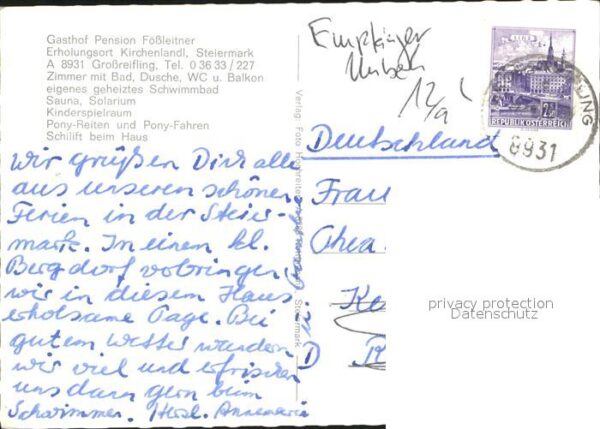 Gasthof Pension Fößleitner
Erholungsort Kirchenlandl, Steiermark
A 8931 Großreifling, Tel. 0 36 33 / 227
Zimmer mit Bad, Dusche, WC u. Balkon
eigenes geheiztes Schwimmbad
Sauna, Solarium
Kinderspielraum
Pony-Reiten und Pony-Fahren
Schilift beim Haus
Wir grüßen Dich alle
aus unseren schönen
Ferien in der Steier-
mark. In einem kl.
Bergdorf verbringen
wir in diesem Haus
erholsame Tage. Bei
gutem Wetter wandern
wir viel und erfrischen
uns dann gern beim
Schwimmen. Herzl. Annemarie
Verlag: Foto
Steiermark
Empfänger
Unbek
12/9
LINZ
REPUBLIK ÖSTERREICH
8931
Deutschland
Frau
D
privacy protection
Datenschutz